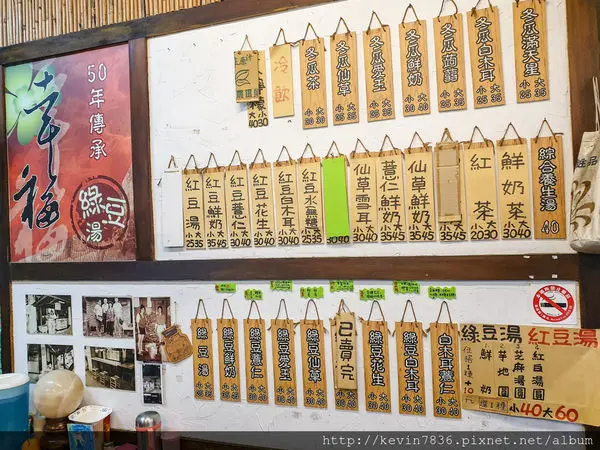 http://kevin7836.pixnet.net/album
50年傳承
幸福
綠豆湯
冷飲
冬瓜茶 小20 大30
冬瓜仙草 小25 大35
冬瓜愛玉 小25 大35
冬瓜鮮奶 小30 大40
冬瓜茴蘢
冬瓜白木耳 小25 大35
冬瓜滿天星 小25 大35
紅豆湯 小25 大35
紅豆鮮奶 小25 大35
紅豆薏仁 小30 大40
紅豆花生 小30 大40
紅豆白木耳 小30 大40
紅豆水無糖 小30 大40
仙草雪耳 小30 大40
薏仁鮮奶 小35 大45
仙草鮮奶 小35 大45
紅茶 小20 大30
鮮奶茶 小30 大40
綜合養生湯 40
綠豆湯
綠豆鮮奶
綠豆薏仁
綠豆愛玉
綠豆仙草
已賣完
綠豆花生
綠豆白木耳
白木耳薏仁
綠豆湯 紅豆湯
鮮奶
草地圓
芝麻湯圓
紅白湯圓
小40大60